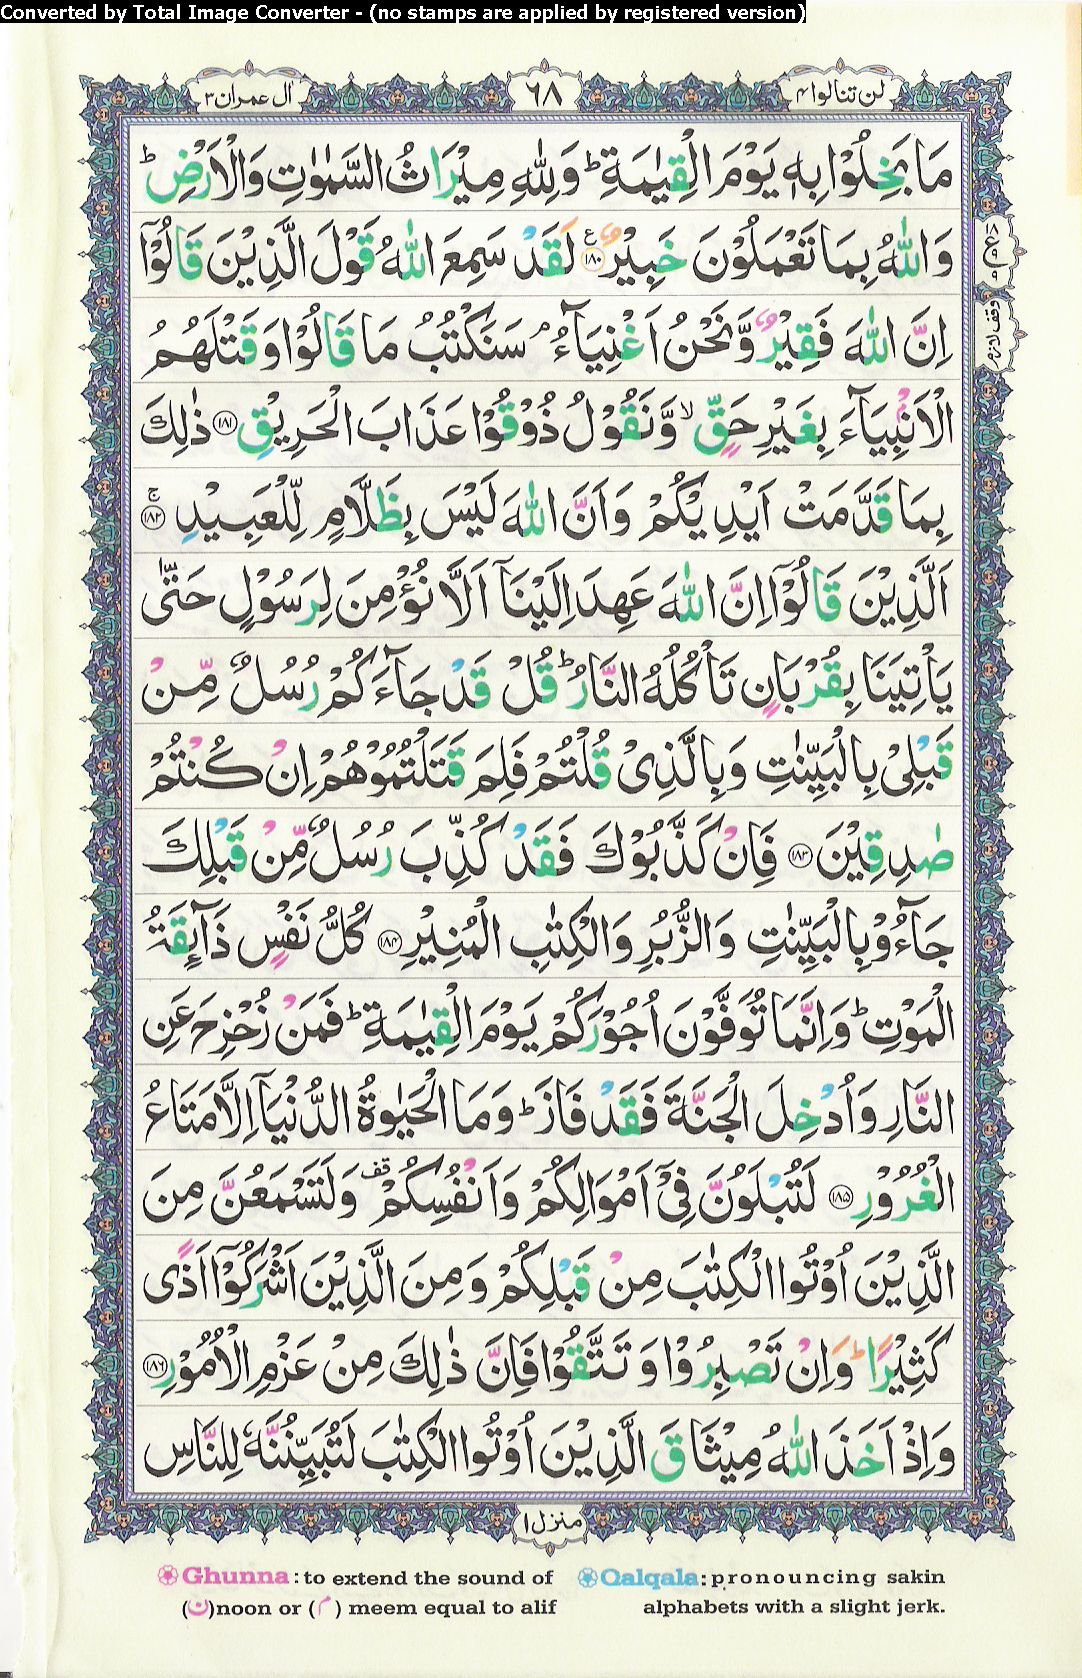 Converted by Total Image Converter - (no stamps are applied by registered version)
لن تنالوا ٤
٦٨
اٰل عمران ٣
مَا بَخِلُوْا بِهٖ يَوْمَ الْقِيٰمَةِ ؕ وَلِلّٰهِ مِيْرَاثُ السَّمٰوٰتِ وَالْاَرْضِ ؕ
وَاللّٰهُ بِمَا تَعْمَلُوْنَ خَبِيْرٌ ﴿۱۸۰﴾ ع لَقَدْ سَمِعَ اللّٰهُ قَوْلَ الَّذِيْنَ قَالُوْۤا
اِنَّ اللّٰهَ فَقِيْرٌ وَّنَحْنُ اَغْنِيَآءُ ۘ سَنَكْتُبُ مَا قَالُوْا وَقَتْلَهُمُ
الْاَنْۢبِيَآءَ بِغَيْرِ حَقٍّ ۙ وَّنَقُوْلُ ذُوْقُوْا عَذَابَ الْحَرِيْقِ ﴿۱۸۱﴾ ذٰلِكَ
بِمَا قَدَّمَتْ اَيْدِيْكُمْ وَاَنَّ اللّٰهَ لَيْسَ بِظَلَّامٍ لِّلْعَبِيْدِ ﴿۱۸۲﴾ ج
اَلَّذِيْنَ قَالُوْۤا اِنَّ اللّٰهَ عَهِدَ اِلَيْنَاۤ اَلَّا نُؤْمِنَ لِرَسُوْلٍ حَتّٰى
يَاْتِيَنَا بِقُرْبَانٍ تَاْكُلُهُ النَّارُ ؕ قُلْ قَدْ جَآءَكُمْ رُسُلٌ مِّنْ
قَبْلِىْ بِالْبَيِّنٰتِ وَبِالَّذِىْ قُلْتُمْ فَلِمَ قَتَلْتُمُوْهُمْ اِنْ كُنْتُمْ
صٰدِقِيْنَ ﴿۱۸۳﴾ فَاِنْ كَذَّبُوْكَ فَقَدْ كُذِّبَ رُسُلٌ مِّنْ قَبْلِكَ
جَآءُوْ بِالْبَيِّنٰتِ وَالزُّبُرِ وَالْكِتٰبِ الْمُنِيْرِ ﴿۱۸۴﴾ كُلُّ نَفْسٍ ذَآئِقَةُ
الْمَوْتِ ؕ وَاِنَّمَا تُوَفَّوْنَ اُجُوْرَكُمْ يَوْمَ الْقِيٰمَةِ ؕ فَمَنْ زُحْزِحَ عَنِ
النَّارِ وَاُدْخِلَ الْجَنَّةَ فَقَدْ فَازَ ؕ وَمَا الْحَيٰوةُ الدُّنْيَاۤ اِلَّا مَتَاعُ
الْغُرُوْرِ ﴿۱۸۵﴾ لَتُبْلَوُنَّ فِىْۤ اَمْوَالِكُمْ وَاَنْفُسِكُمْ قف وَلَتَسْمَعُنَّ مِنَ
الَّذِيْنَ اُوْتُوا الْكِتٰبَ مِنْ قَبْلِكُمْ وَمِنَ الَّذِيْنَ اَشْرَكُوْۤا اَذًى
كَثِيْرًا ؕ وَاِنْ تَصْبِرُوْا وَتَتَّقُوْا فَاِنَّ ذٰلِكَ مِنْ عَزْمِ الْاُمُوْرِ ﴿۱۸۶﴾
وَاِذْ اَخَذَ اللّٰهُ مِيْثَاقَ الَّذِيْنَ اُوْتُوا الْكِتٰبَ لَتُبَيِّنُنَّهٗ لِلنَّاسِ
وقف لازم
منزل ١
Ghunna : to extend the sound of
(ن)noon or (م) meem equal to alif
Qalqala : pronouncing sakin
alphabets with a slight jerk.